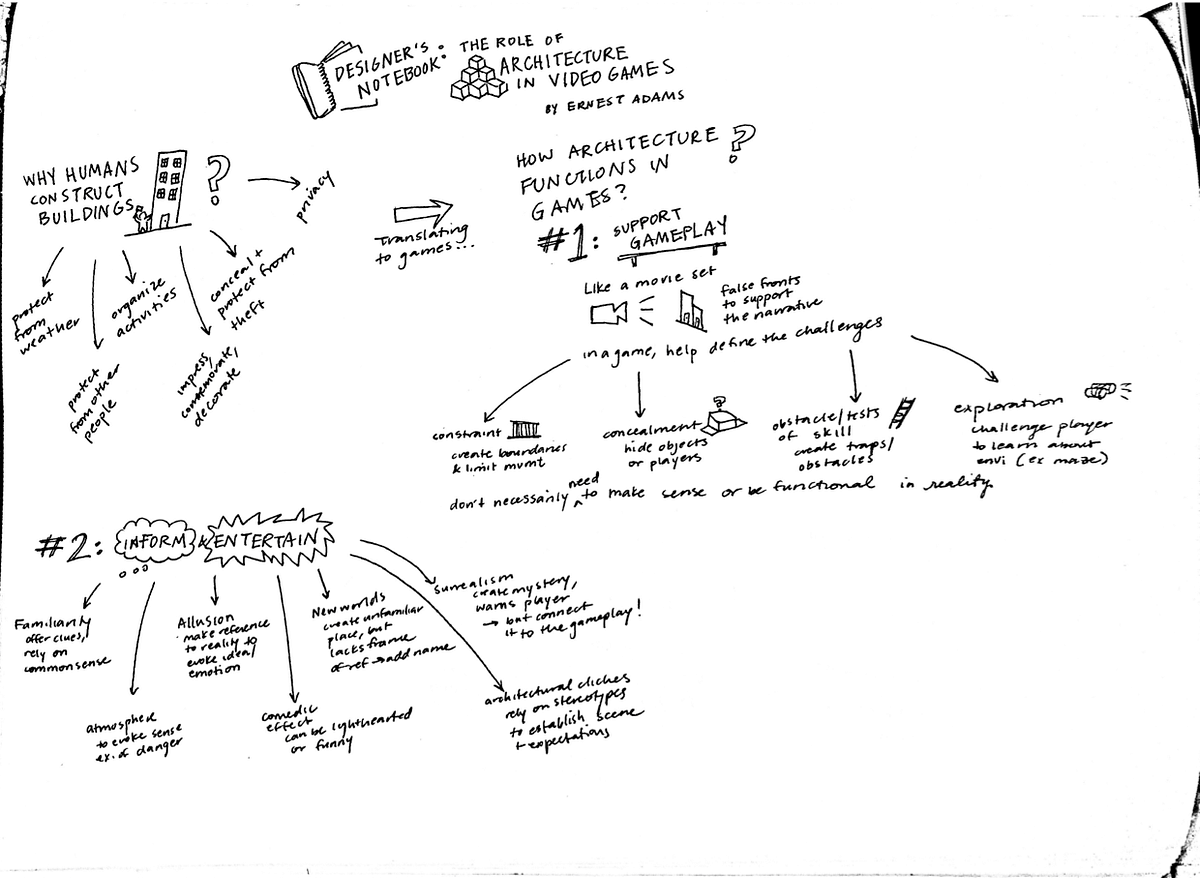 DESIGNER'S
NOTEBOOK:
THE ROLE OF
ARCHITECTURE
IN VIDEO GAMES
BY ERNEST ADAMS
WHY HUMANS
CONSTRUCT
BUILDINGS
?
privacy
conceal +
protect from
theft
impress,
commemorate,
decorate
organize
activities
protect
from other
people
protect
from
weather
Translating
to games...
HOW ARCHITECTURE
FUNCTIONS IN
GAMES?
?
#1: SUPPORT
GAMEPLAY
Like a movie set
false fronts
to support
the narrative
in a game, help define the challenges
constraint
create boundaries
& limit mvmt
concealment
?
hide objects
or players
obstacle/tests
of skill
create traps/
obstacles
exploration
challenge player
to learn about
envi (ex maze)
need
don't necessarily ^ to make sense or be functional in reality.
#2: INFORM & ENTERTAIN
Familiarity
offer clues,
rely on
common sense
atmosphere
to evoke sense
ex. of danger
Allusion
make reference
to reality to
evoke idea/
emotion
comedic
effect
can be lighthearted
or funny
New worlds
create unfamiliar
place, but
lacks frame
of ref → add name
surrealism
create mystery,
warns player
→ but connect
it to the gameplay!
architectural cliches
rely on stereotypes
to establish scene
+ expectations